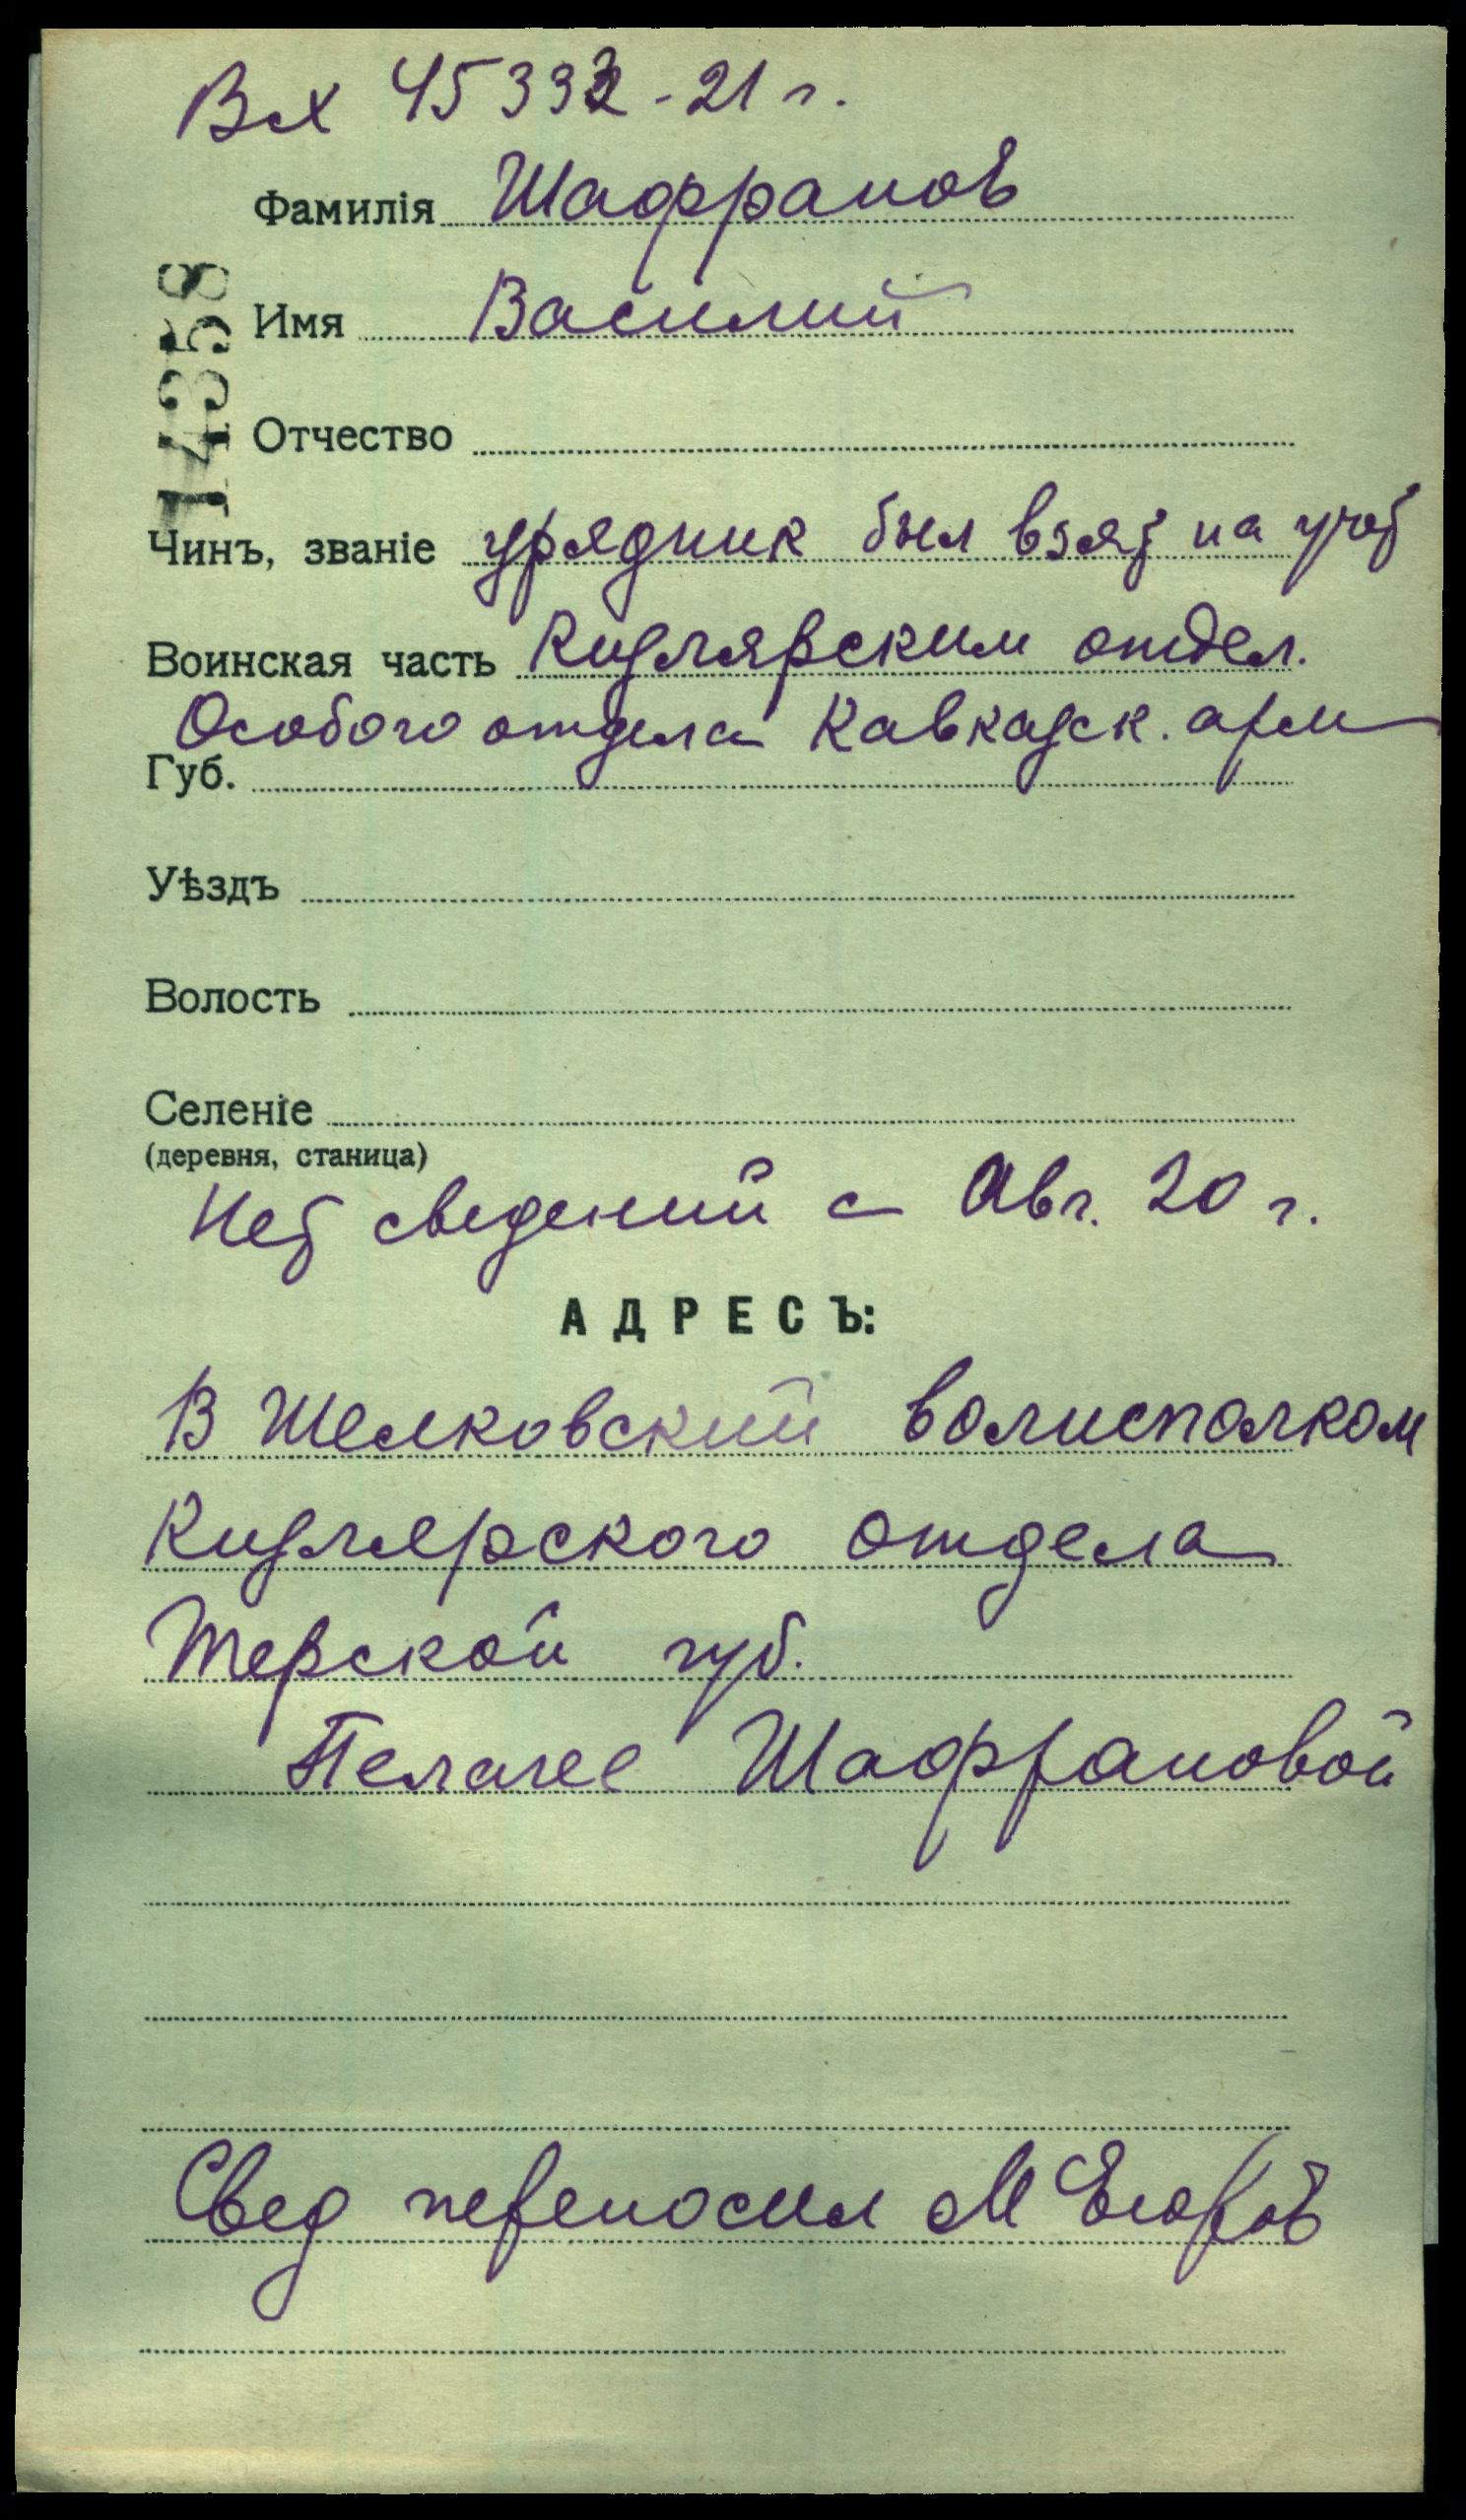 Вх 45332-21 г.
Фамилія Шафранов
14358
Имя Василий
Отчество
Чинъ, званіе урядник был взят на учет
Воинская часть Кизлярским отдел.
Особого отдела Кавказск. арм
Губ.
Уѣздъ
Волость
Селеніе
(деревня, станица)
Нет сведений с Авг. 20 г.
АДРЕСЪ:
В Шелковский волисполком
Кизлярского отдела
Терской губ.
Пелагее Шафрановой
Свед переносил М Егоров